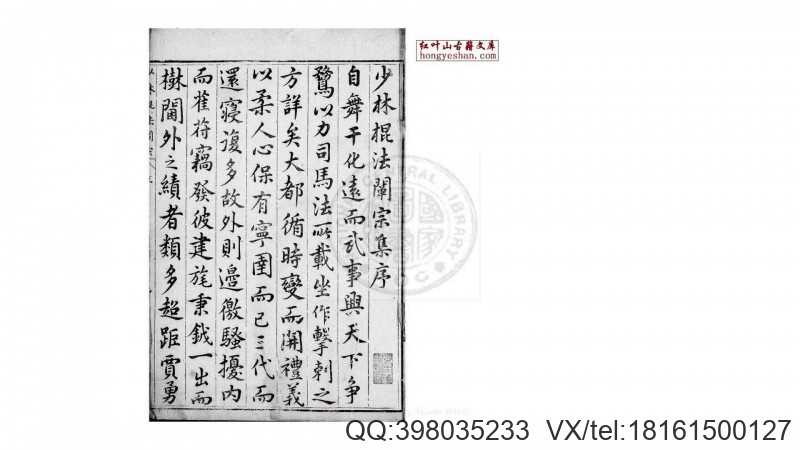 红叶山古籍文库
hongyeshan.com
少林棍法闡宗集序
自舞干化遠而武事興天下争
鶩以力司馬法所載坐作擊刺之
方詳矣大都循時變而閑禮義
以柔人心保有寧圉而已三代而
還寢復多故外則邊徼騷擾内
而萑苻竊發彼建旄秉鉞一出而
樹閫外之績者類多超距賈勇
QQ:398035233 VX/tel:18161500127